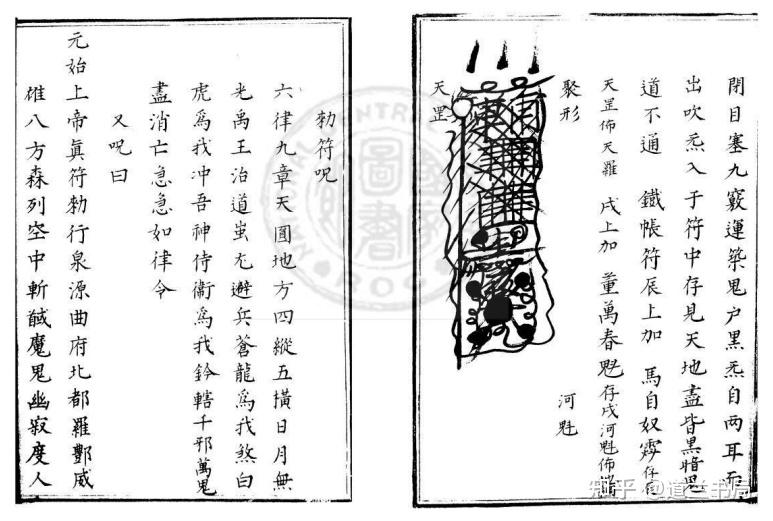 閉目塞九竅運築鬼户黑炁自兩耳而
出吹炁入于符中存見天地盡皆黑暗鬼
道不通 鐵帳符辰上加 馬自奴霽存
天罡佈天羅 戌上加 董萬春魁存戌河魁佈
聚形 河魁
天罡
勑符呪
六律九章天圓地方四縱五橫日月無
光禹王治道蚩尤避兵蒼龍爲我煞白
虎爲我冲吾神侍衞爲我鈐轄千邪萬鬼
盡消亡急急如律令
又呪曰
元始上帝真符勑行泉源曲府北都羅酆威
雄八方森列空中斬馘魔鬼幽寂度人
知乎 @道兰书局